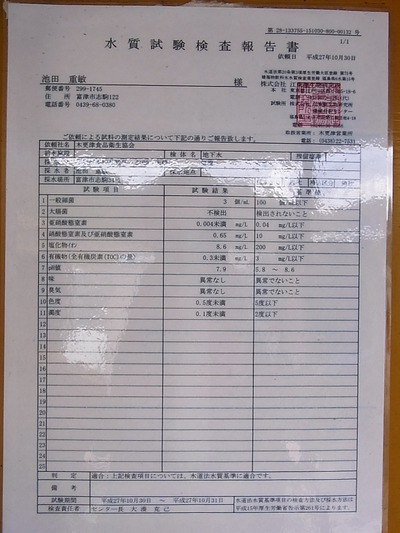 第 28-133755-151030-800-00132 号
水質試験検査報告書
1/1
依頼日 平成27年10月30日
池田 重敏 様
郵便番号 299-1745
住 所 富津市志駒122
電話 0439-68-0380
ご依頼による試料の測定結果について下記の通りご報告致します。
依頼社名 木更津食品衛生協会
検体名 地下水
採水者
採水場所 富津市志駒
試験項目 試験結果 基準値
1 一般細菌 3 個/mL 100 個/mL以下
2 大腸菌 不検出 検出されないこと
3 亜硝酸態窒素 0.004未満 mg/L 0.04 mg/L以下
4 硝酸態窒素及び亜硝酸態窒素 0.65 mg/L 10 mg/L以下
5 塩化物イオン 8.6 mg/L 200 mg/L以下
6 有機物(全有機炭素(TOC)の量) 0.3未満 mg/L 3 mg/L以下
7 pH値 7.9 5.8 ～ 8.6
8 味 異常なし 異常でないこと
9 臭気 異常なし 異常でないこと
10 色度 0.5度未満 5度以下
11 濁度 0.1度未満 2度以下
12
13
14
15
16
17
18
19
20
21
22
23
24
25
判 定 適合：上記検査項目については、水道法水質基準に適合です。
備 考
試験期間 平成27年10月30日 ～ 平成27年10月31日
水道法水質基準項目の検査方法及び採水方法は
検査責任者 センター長 大湊 克己
平成15年厚生労働省告示第261号によります。